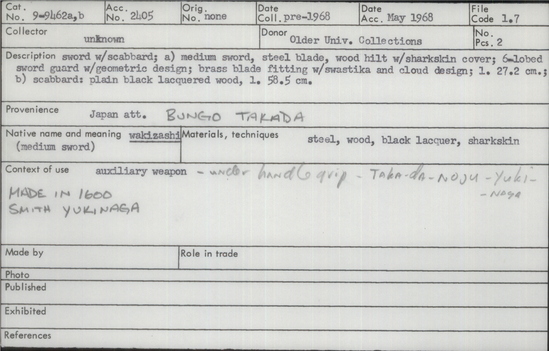 Cat. No. 9-9462a,b Acc. No. 2405 Orig. No. none Date Coll. pre-1968 Date Acc. May 1968 File Code 1.7
Collector unknown Donor Older Univ. Collections No. Pcs. 2
Description sword w/scabbard; a) medium sword, steel blade, wood hilt w/sharkskin cover; 6-lobed
sword guard w/geometric design; brass blade fitting w/swastika and cloud design; l. 27.2 cm.;
b) scabbard: plain black lacquered wood, l. 58.5 cm.
Provenience Japan att. BUNGO TAKADA
Native name and meaning wakizashi Materials, techniques
(medium sword) steel, wood, black lacquer, sharkskin
Context of use auxiliary weapon - under handle grip - TAKA-da-NOJU-YUKI-
-NAGA
MADE IN 1600
SMITH YUKINAGA
Made by Role in trade
Photo
Published
Exhibited
References